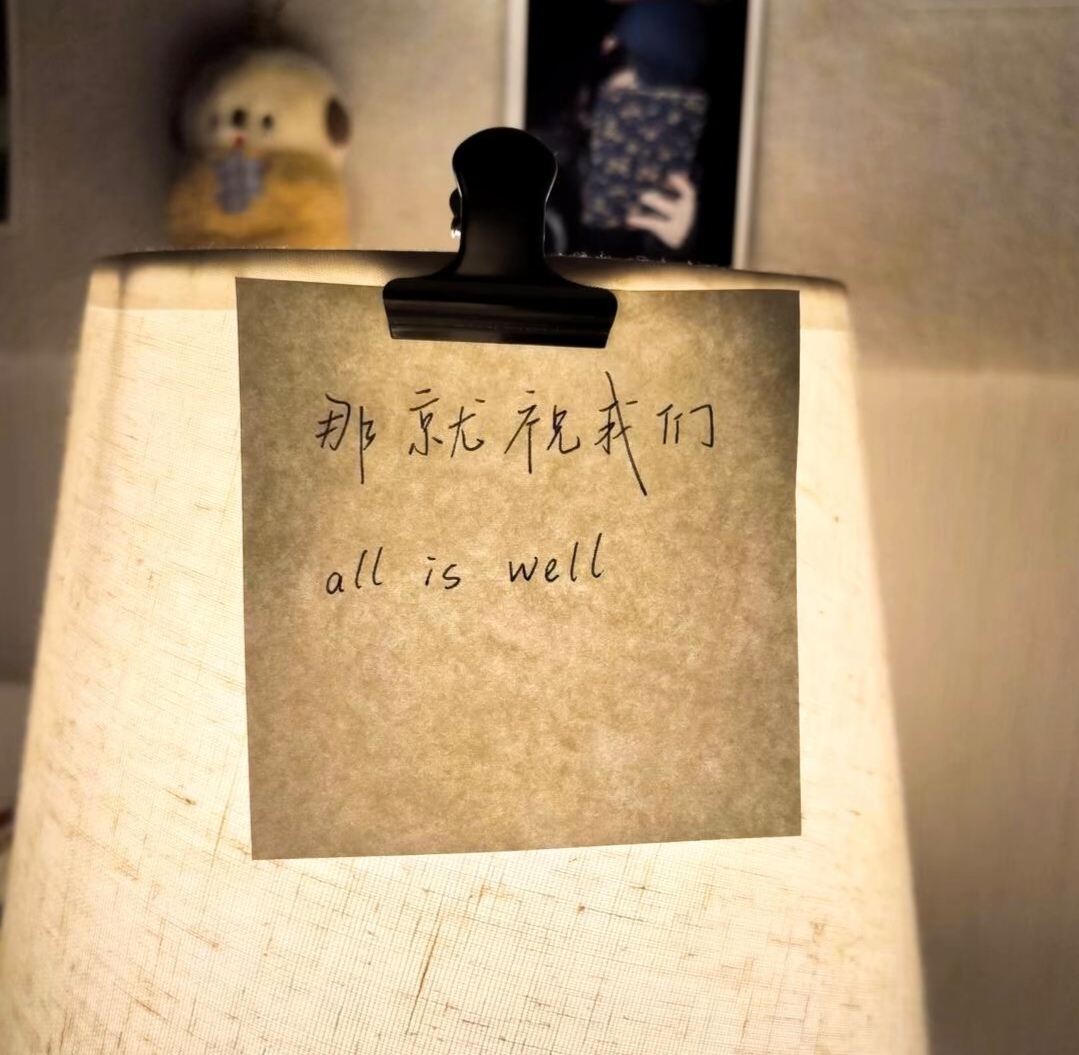 那就祝我们
all is well